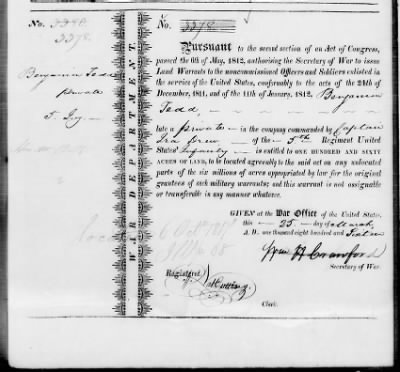 No. 3378
3378
No. 3378
Benjamin Tedd
private
5. Ivy
WAR DEPARTMENT.
PURSUANT to the second section of an Act of Congress,
passed the 6th of May, 1812, authorising the Secretary of War to issue
Land Warrants to the noncommissioned Officers and Soldiers enlisted
in the service of the United States, conformably to the acts of the 24th of
December, 1811, and of the 11th of January, 1812, Benjamin
Tedd,
late a private in the company commanded by Captain
Ira Drew of the 5th Regiment United
States' Infantry is entitled to ONE HUNDRED AND SIXTY
ACRES OF LAND, to be located agreeably to the said act on any unlocated
parts of the six millions of acres appropriated by law for the original
grantees of such military warrants; and this warrant is not assignable
or transferable in any manner whatever.
GIVEN at the War Office of the United States,
this 25 day of March
A. D. one thousand eight hundred and Sixteen
Wm H Crawford
Secretary of War.
Registered
Clerk.